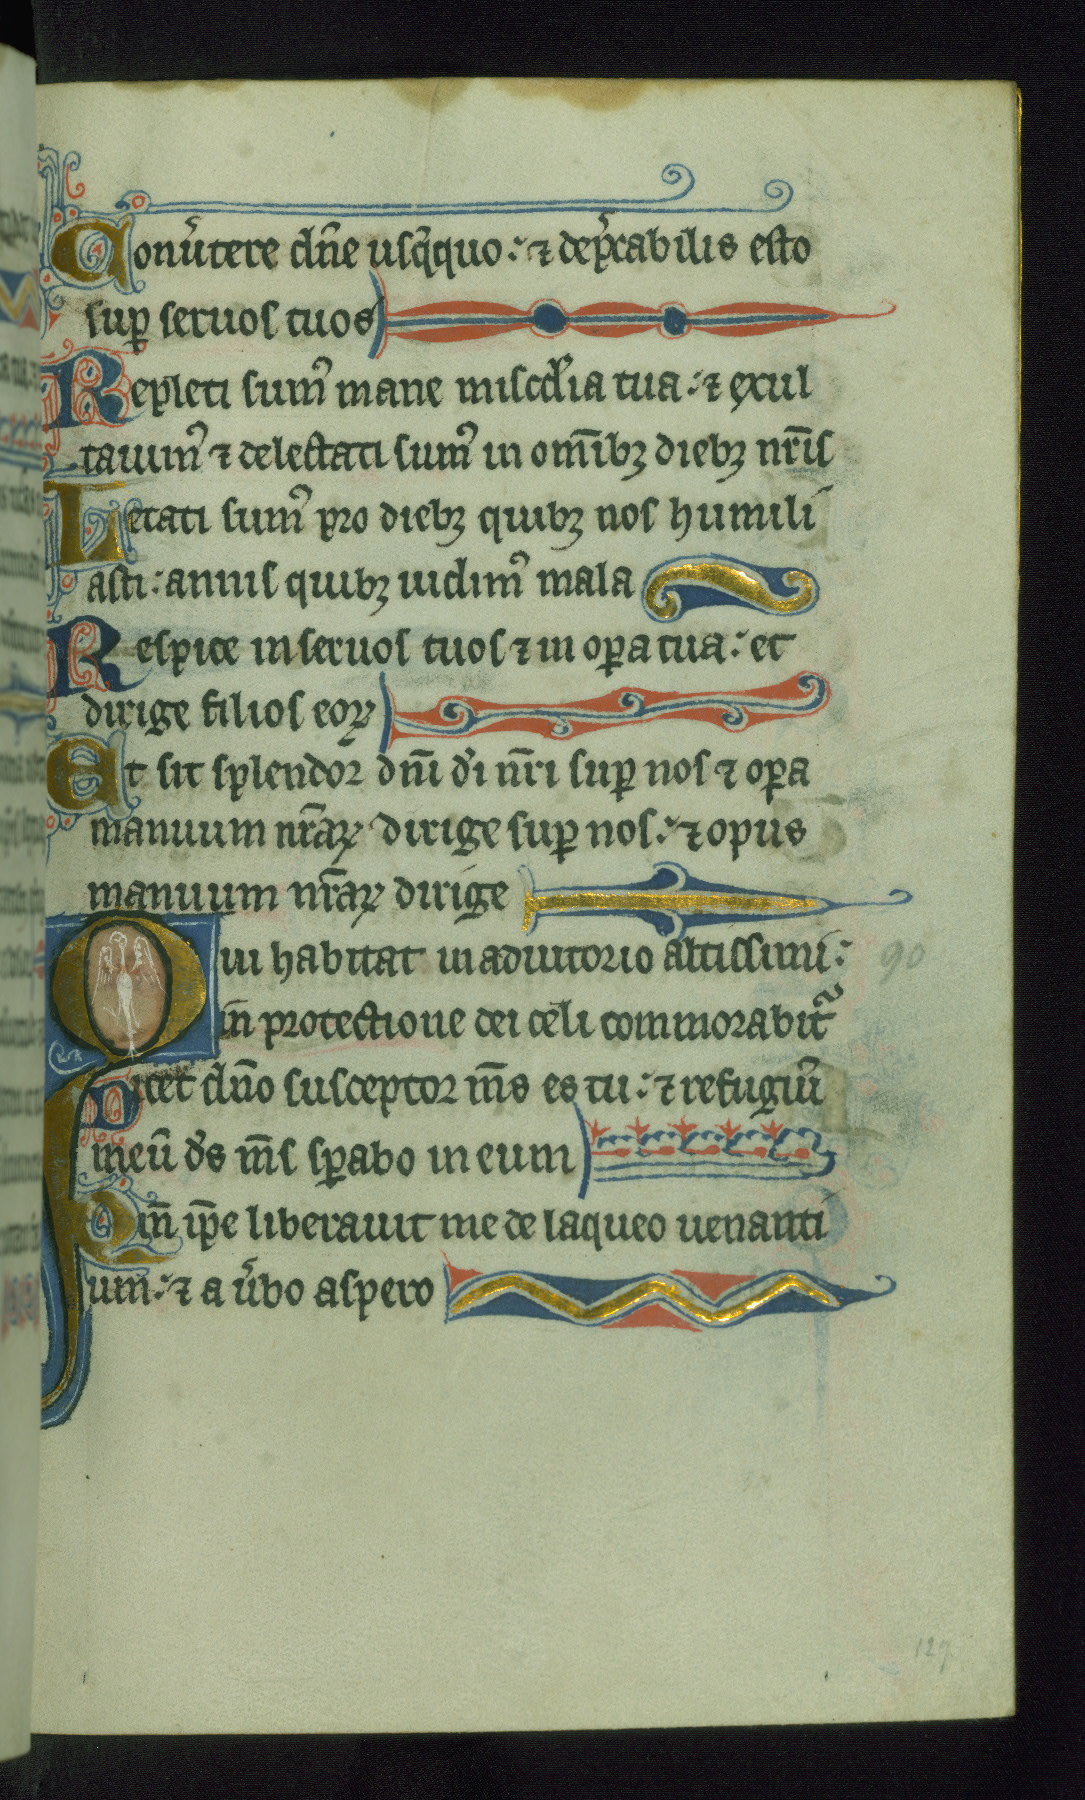 Conũtere dñe usq̃quo: ⁊ dep̃cabilis esto
suꝑ seruos tuos
Repleti sumꝰ mane misc̃dia tua: ⁊ exul
tauimꝰ ⁊ delectati sumꝰ in om̃ibꝫ diebꝫ nr̃is
Letati sumꝰ pro diebꝫ quibꝫ nos humili
asti: annis quibꝫ uidimꝰ mala
Respice in seruos tuos ⁊ in oꝑa tua: et
dirige filios eoꝝ
Et sit splendor dñi di̾ nr̃i suꝑ nos ⁊ oꝑa
manuum nr̃aꝝ dirige suꝑ nos: ⁊ opus
manuum nr̃aꝝ dirige
Qui habitat in adiutorio altissimi:
in protectione dei celi commorabit᷑
Dicet dño susceptor m̃s es tu: ⁊ refugiũ
meũ d̾s m̃s sꝑabo in eum
Qm̃ ip̃e liberauit me de laqueo uenanti
um: ⁊ a ũbo aspero
90
129